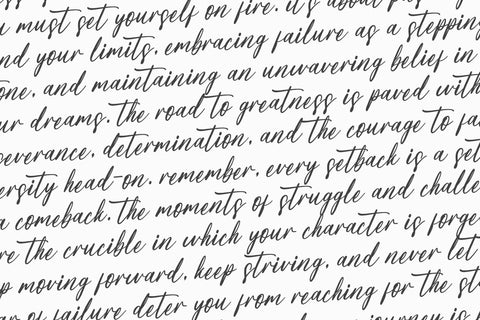 u must set yourself on fire. it's about pus
nd your limits, embracing failure as a stepping
one, and maintaining an unwavering belief in
ur dreams. The road to greatness is paved with
severance, determination, and the courage to fa
ersity head-on. remember, every setback is a set
a comeback. The moments of struggle and challe
re the crucible in which your character is forge
p moving forward, keep striving, and never let
ar of failure deter you from reaching for the st
journey is